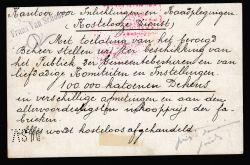 Kantoor voor Inlichtingen en Raadplegingen
Kostelooze Dienst
Met toelating van het bevoegd
Beheer stellen wij ter beschikking van
het Publiek der Gemeentebesturen en van
liefdadige Komiteiten en Instellingen.
100.000 katoenen Dekens
in verschillige afmetingen en aan den
allervoordeeligsten inkoopprijs der fa-
brieken.
Alles wordt kosteloos afgehandeld